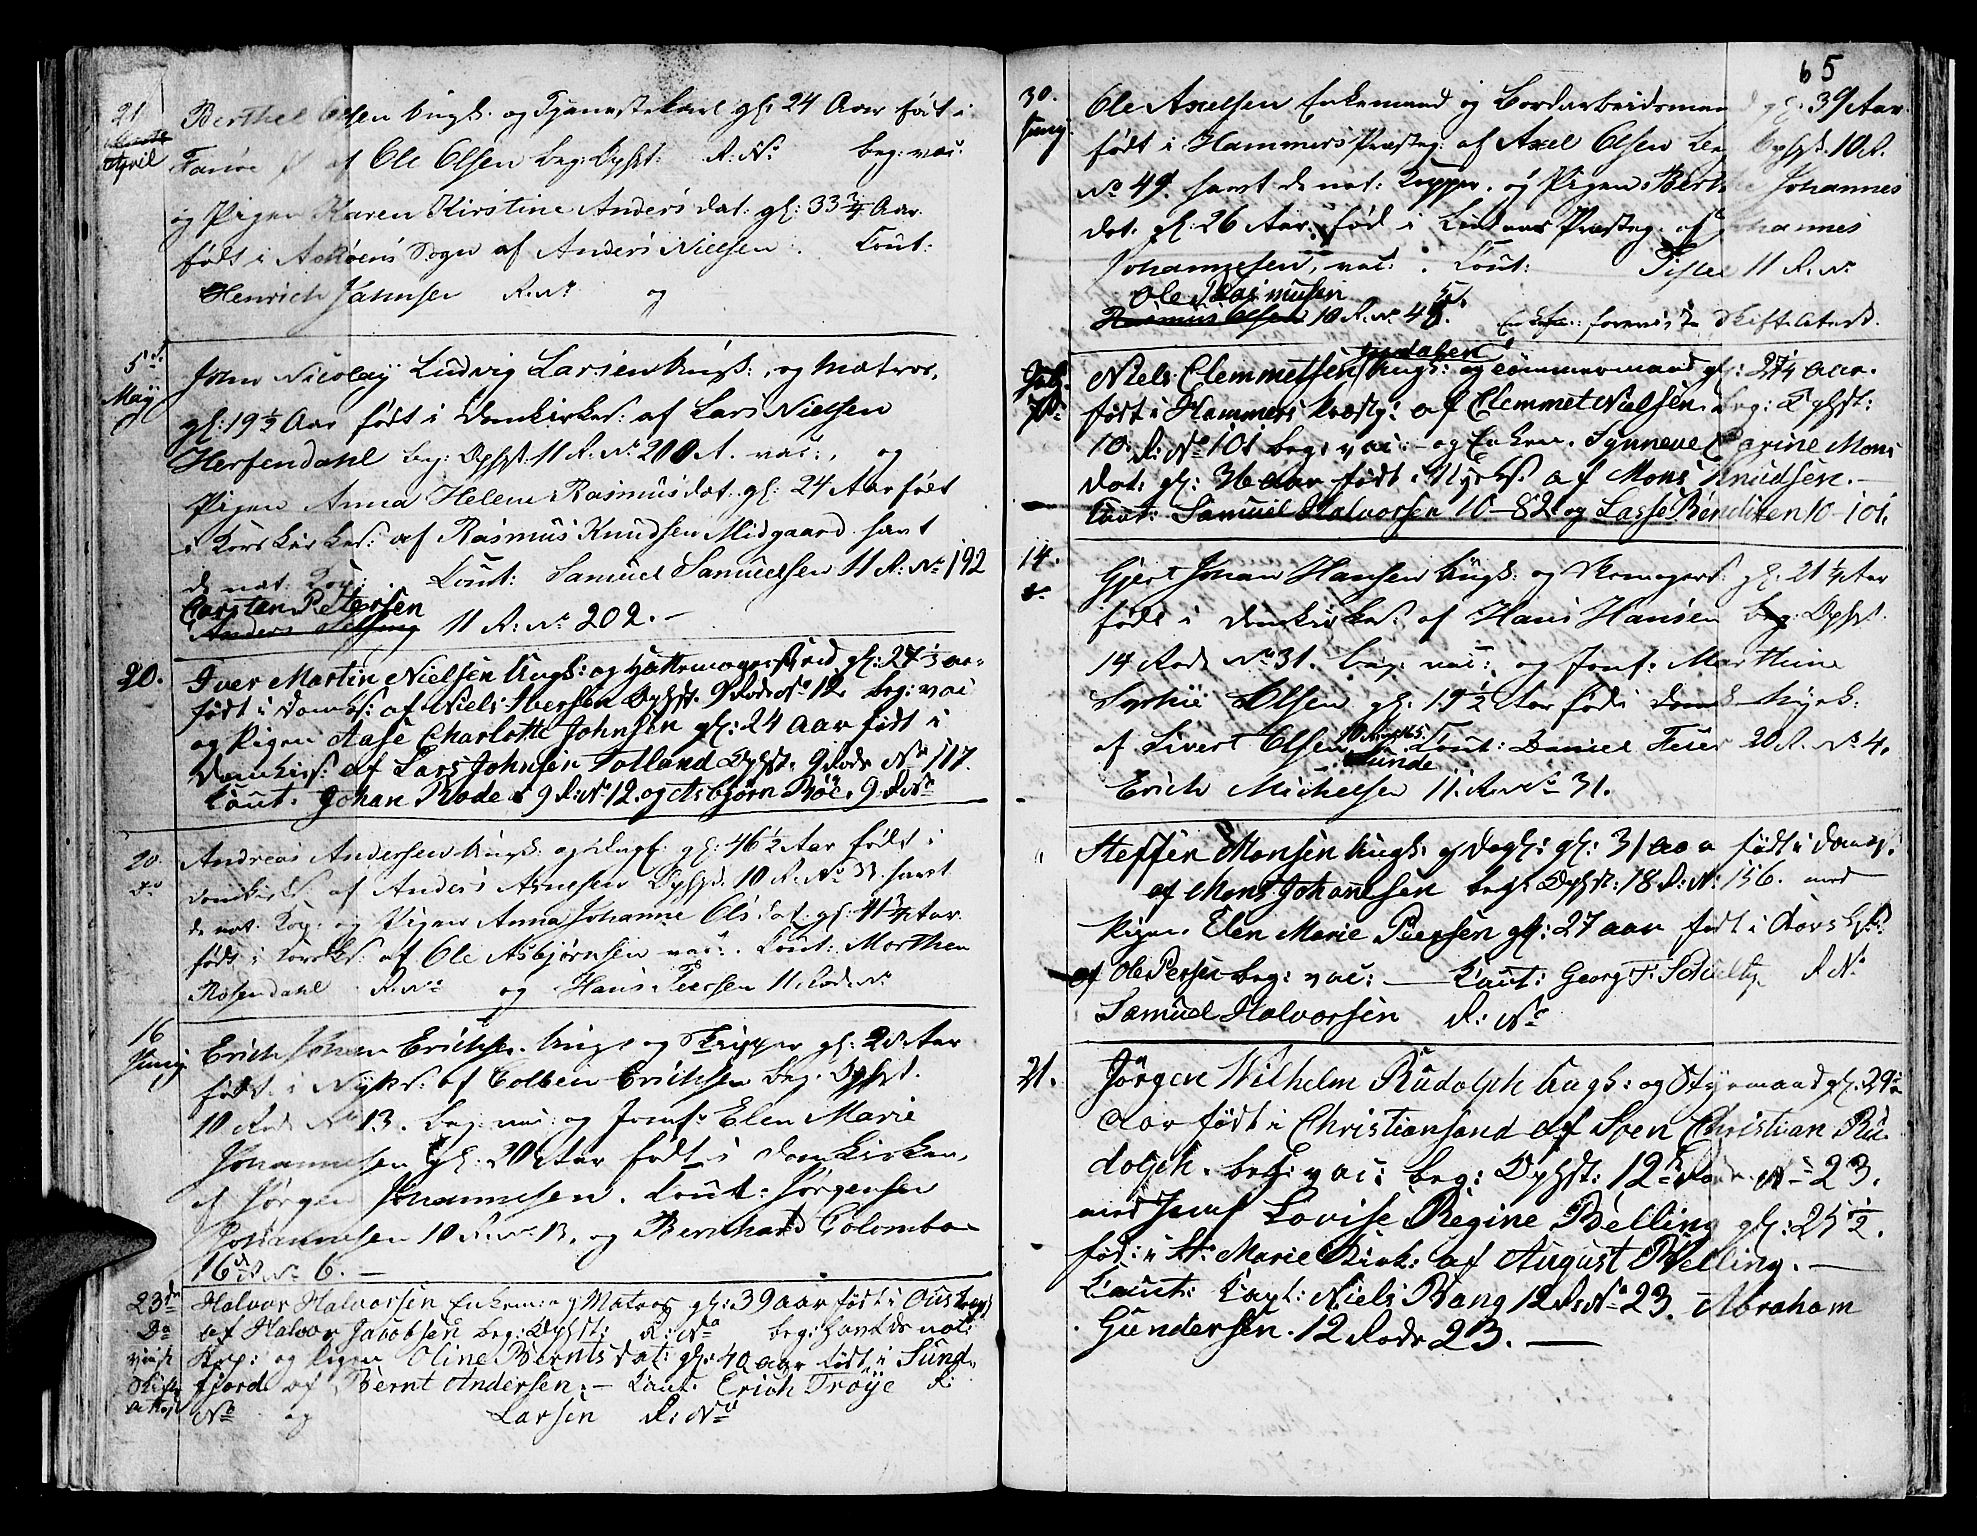 21
April
Berthel Olsen Ungk. og Tjenestekarl gl: 24 Aar født i
Fanøe af Ole Olsen beg: Ophst: R. No beg: vac:
og Pigen Karen Kirstine Andersdat. gl: 33 3/4 Aar
født i Askøens Sogn af Anders Nielsen. Caut:
Henrich Jahnsen R. No og
5t
May
John Nicolay Ludvig Larsen Ungk:, og Matros,
gl: 19 1/2 Aar født i Domkirkes: af Lars Nielsen
Hersendahl beg: Ophst: 11 R. No 200 A. vac:, og
Pigen Anna Helene Rasmusdat. gl: 24 Aar født
i Kors kirkes: af Rasmus Knudsen Midgaard havt
de nat: Kop: Caut: Samuel Samuelsen 11 R. No 192
Carsten Petersen
Anders 11 R: No 202. –
20.
Iver Martin Nielsen Ungk: og Hattemagersvend gl: 27 1/2 aar
født i Domks: af Niels Iversen Ophst. 9 Rode No 12 beg: vac
og Pigen Aase Charlotte Johnsen gl: 24 Aar født i
Domkirks: af Lars Johnsen Tolland Ophst. 9 Rode No 117.
Caut. Johan Rode 9 R: No 12. og Asbjørn Røe. 9 R No
20
do
Andreas Andersen Ungk: og gl: 46 1/2 Aar født i
Domkirks: af Anders Arnesen Ophst. 10 R. No 33 havt
de nat: Kop: og Pigen Anna Johanne Olsdat. gl: 41 3/4 Aar
født i Korsks: af Ole Asbjørnsen vac:. Caut: Morthen
Rosendahl R. No og Hans Peersen 11. Rode No
16
Junij
Erich Johan Erichsen. Ungk og Skipper gl. 28 Aar
født i Nyks: af Colbein Erichsen beg. Ophst.
10 Rode No 13. beg: vac: og Jomf: Elen Marie
Johannesen gl: 20 Aar født i Domkirken,
af Jørgen Johannesen. Caut: Jørgensen
Johannesen 10 R. No 13. og Bernhard Colombo
16 R No 6. –
23de
Do
Halvor Halvorsen Enkem: og Matros gl: 39 aar født i
af Halvor Jacobsen beg: Ophst: R: No beg: havt de nat:
Kop: og Pigen Oline Berntsdat: gl: 40 aar født i Sund-
fjord af Bernt Andersen. – Caut. Erich Trøye R:
No og Larsen R: No
65
30.
Junij
Ole Axelsen Enkemand og Bordarbeidsmand gl: 39 Aar
født i Hammers Præsteg: af Axel Olsen beg Ophst. 10 R.
No 49. havt de nat: Kopper. og Pigen Berthe Johannes
dat. gl: 26 Aar. fød i Lindaas Præsteg. af Johannes
Johannesen, vac:. Caut: 11 R. No
Ole Rasmusen
Rasmus Olsen 10 R. No 49. Enkem: foreviste Skifte Attest.
July
7de
Niels Clemmetsen Ungk: og Tømmermand gl: 27 1/4 aar.
født i Hammers Præstg: af Clemmet Nielsen. beg: Ophst:
10. R: No 101 beg: vac: og Enken. Synneve Carine Mons
dat. gl: 36 aar født i Nyeks. af Mons Knudsen. –
Caut: Samuel Halvorsen 10 – 82 og Lasse Bendixen 10 – 101.
14.
do
Gjert Johan Hansen Ungk: og Skomagers: gl. 21 1/4 Aar
født i Domkirkes: af Hans Hansen beg. Ophst.
14 Rode No 31. beg: vac: og Jomf: Marthine
Sophie Olsen gl. 19 1/2 Aar fød i Domk
af Sivert Olsen Caut: Daniel 20 R. No 4.
Sunde
Erich Michelsen 11. R. No 31.
"
Steffen Monsen Ungk: og Dagl: gl: 31 aar født i Domks.
af Mons Johannesen beg: Ophst: 18 R: No 156. med
Pigen. Elen Marie Peersen gl: 27 aar født i Korsks:
af Ole Persen beg: vac: — Caut: Georg F: R No
Samuel Halvorsen R: No
21.
Jörgen Wilhelm Rudolph Ungk: og Styrmand gl. 29
aar født i Christiansand af Sven Christian Ru-
dolph. beg: vac: beg: Ophst: 12te Rode No 23.
med Jomf Lovise Regine Belling gl: 25 1/2.
fød: i St: Marie Kirk: af August Belling. —
Caut: Capt: Niels Bang 12 R: No 23. Abraham
Gundersen. 12 Rode 23. —